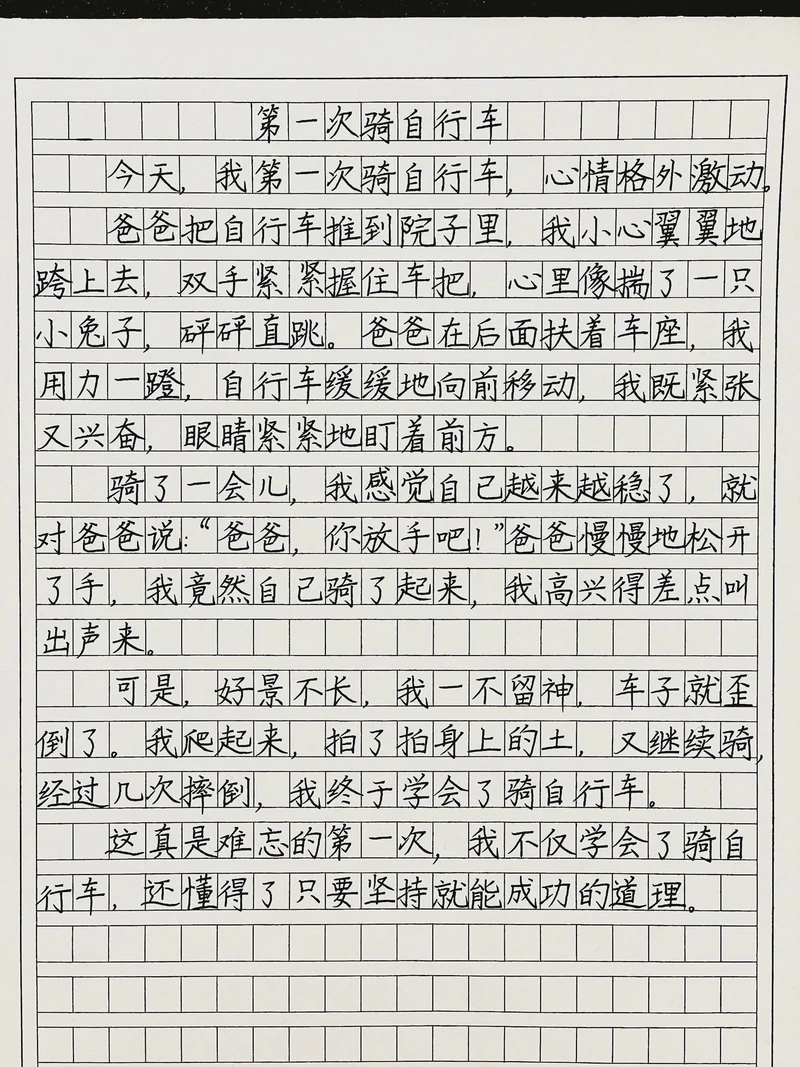 第一次骑自行车
今天，我第一次骑自行车，心情格外激动。
爸爸把自行车推到院子里，我小心翼翼地
跨上去，双手紧紧握住车把，心里像揣了一只
小兔子，砰砰直跳。爸爸在后面扶着车座，我
用力一蹬，自行车缓缓地向前移动，我既紧张
又兴奋，眼睛紧紧地盯着前方。
骑了一会儿，我感觉自己越来越稳了，就
对爸爸说：“爸爸，你放手吧！”爸爸慢慢地松开
了手，我竟然自己骑了起来，我高兴得差点叫
出声来。
可是，好景不长，我一不留神，车子就歪
倒了。我爬起来，拍了拍身上的土，又继续骑，
经过几次摔倒，我终于学会了骑自行车。
这真是难忘的第一次，我不仅学会了骑自
行车，还懂得了只要坚持就能成功的道理。